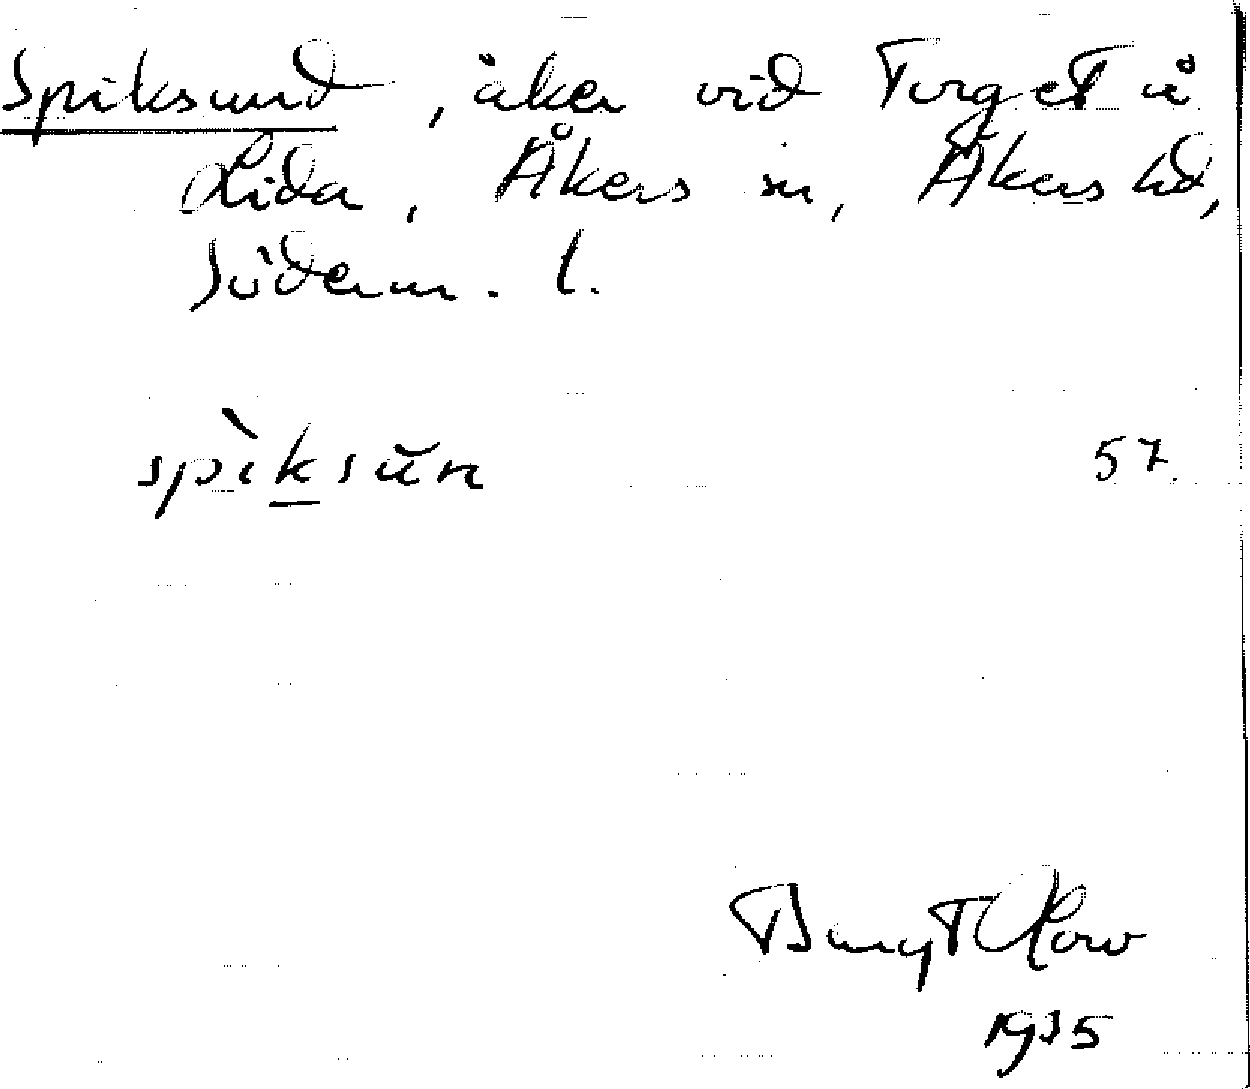 Spiksund, åker vid Torget å
Lida, Åkers sn, Åkers hd,
Söderm. l.
spìksŭn 57.
Bengt
1935